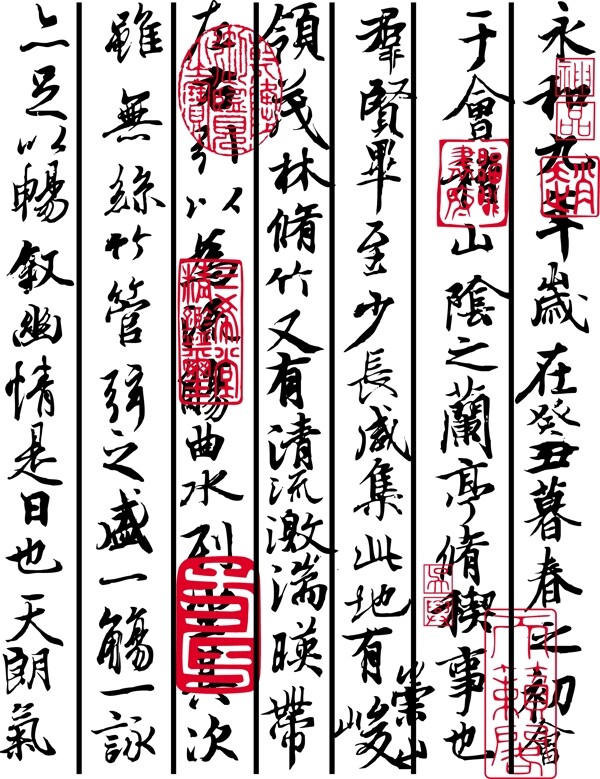 永和九年歲在癸丑暮春之初會
于會稽山陰之蘭亭脩禊事也
羣賢畢至少長咸集此地有崇山峻
領茂林脩竹又有清流激湍暎帶
左右引以為流觴曲水列坐其次
雖無絲竹管弦之盛一觴一詠
亦足以暢敘幽情是日也天朗氣
三希堂精鑑璽